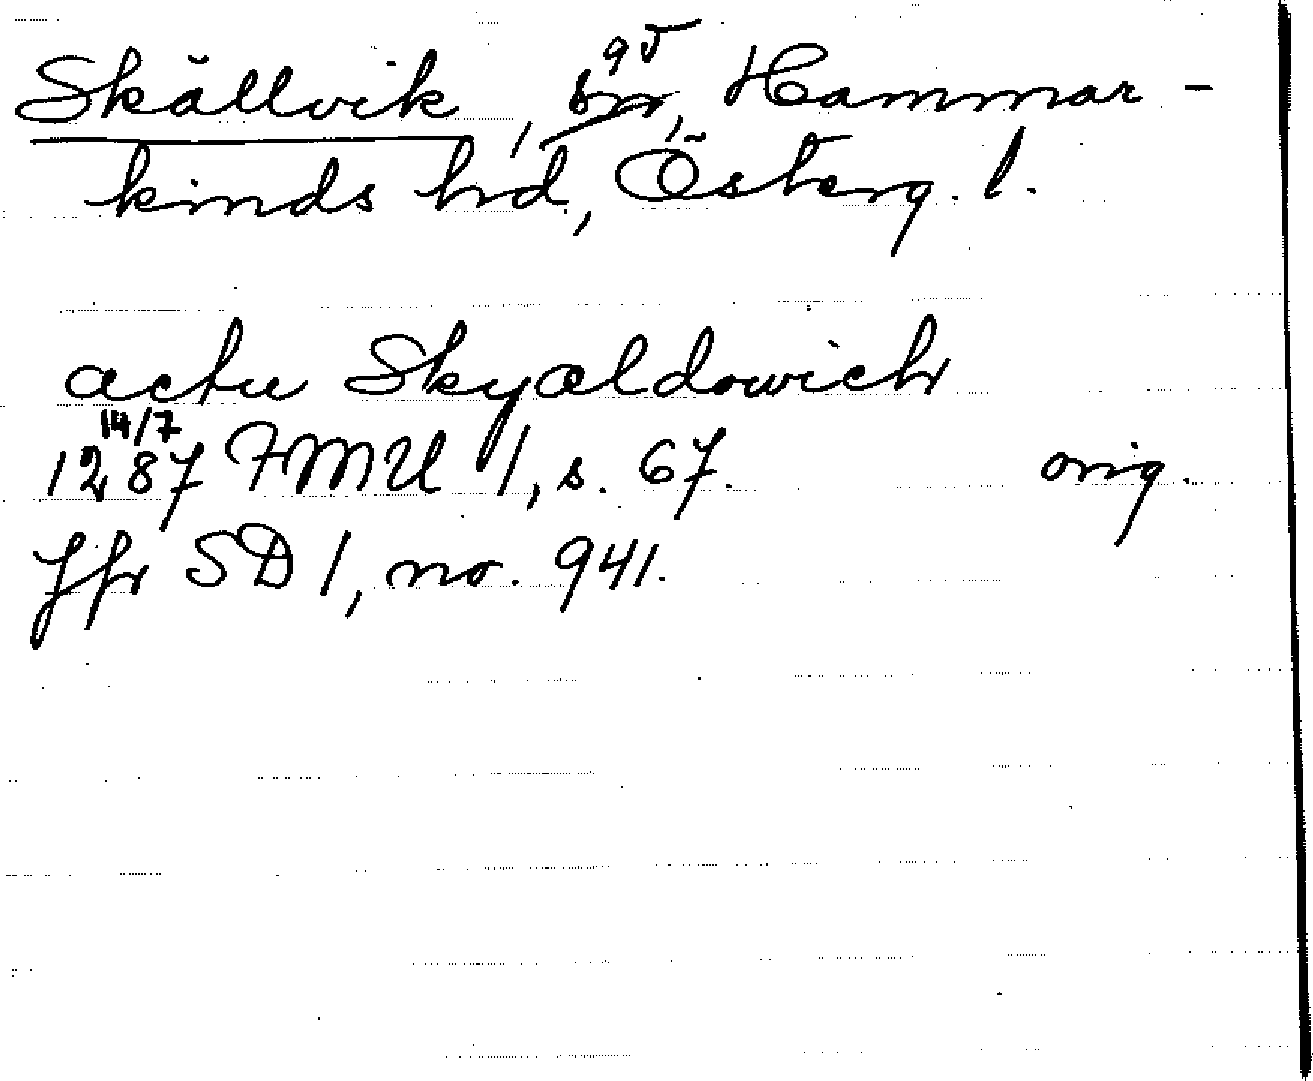 gd
Skällvik, sn, Hammar-
kinds hd, Österg. l.
actu Skyældowich
14/7
1287 FMU 1, s. 67. orig.
Jfr SD 1, no. 941.